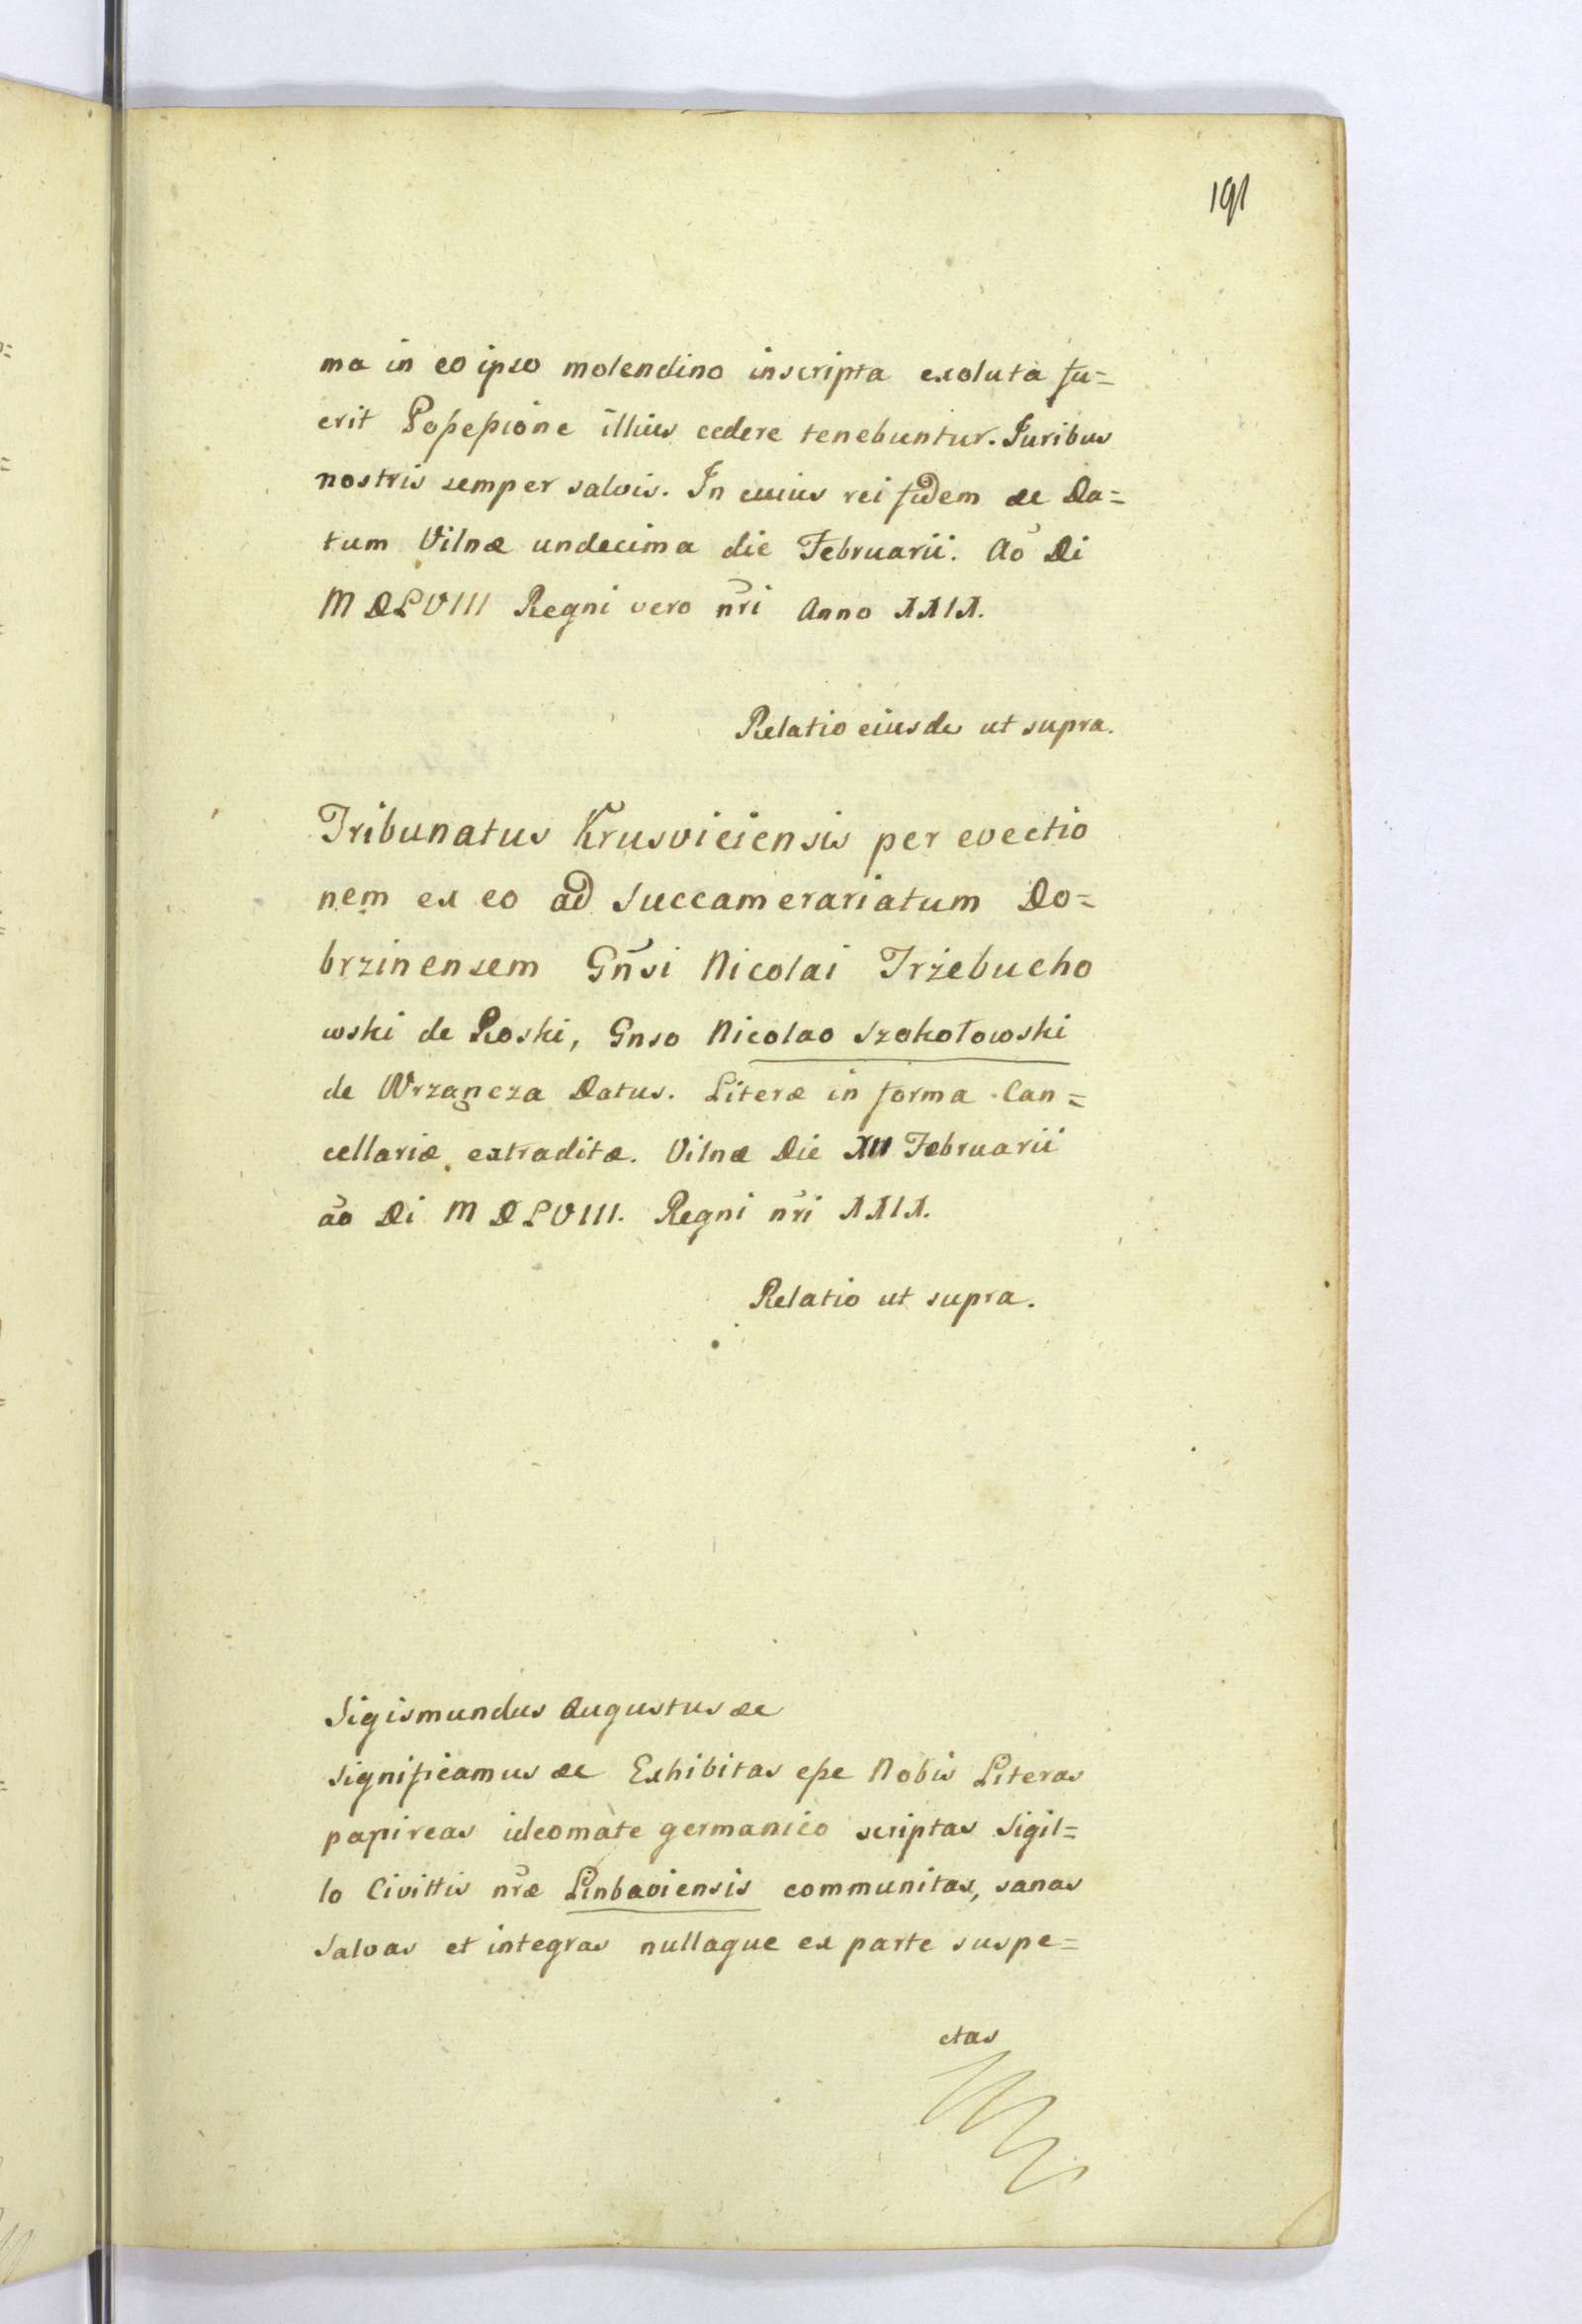 191
ma in eo ipso molendino inscripta exoluta fu=
erit Possessione illius cedere tenebuntur. Juribus
nostris semper salvis. In cuius rei fidem &c Da=
tum Vilnæ undecima die Februarii. Ao Di
MDLVIII Regni vero nri Anno XXIX.
Relatio eiusde ut supra.
Tribunatus Krusviciensis per evectio
nem ex eo ad Succamerariatum Do=
brzinensem Gnsi Nicolai Trżebucho
wski de Roski, Gnso Nicolao Szokołowski
de Wrzącza Datus. Literæ in forma Can=
cellariæ extraditæ. Vilnæ Die XII Februarii
ao Di MDLVIII. Regni nri XXIX.
Relatio ut supra.
Sigismundus Augustus &c
Significamus &c Exhibitas esse Nobis Literas
papireas ideomate germanico scriptas Sigil=
lo Civittis nræ Linbaviensis communitas, sanas
Salvas et integras nullaque ex parte suspe=
ctas